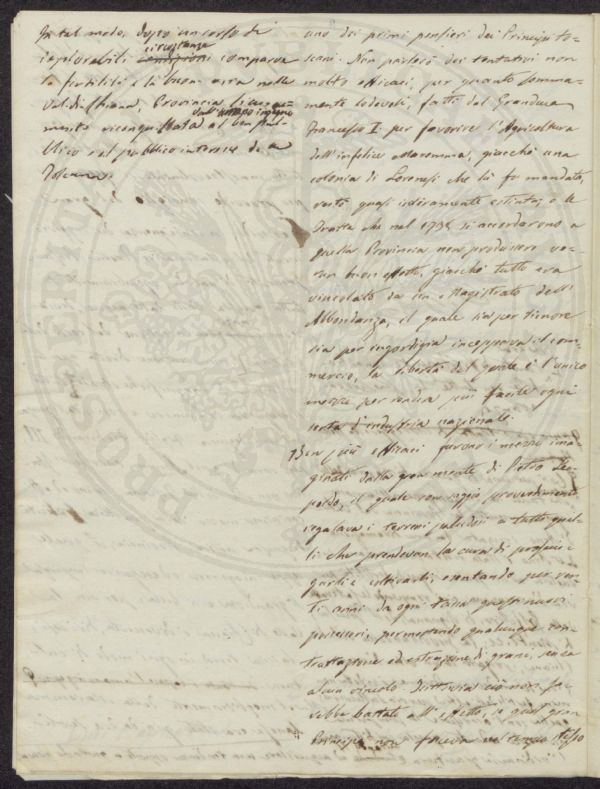 In tal modo, dopo un corso di
condizioni circostanze comparve
la fertilità e la buon'aria nella
Val di Chiana, Provincia
mente riconquistata dall'umano ingegno al ben pub-
blico e al pubblico interesse della
Toscana.
uno dei primi pensieri dei Principi to-
scani. Non parlerò dei tentativi non
molto efficaci, per quanto somma-
mente lodevoli, fatti dal Granduca
Francesco I. per favorire l'Agricoltura
dell'infelice Maremma, giacchè una
colonia di Lorenesi che là fu mandata,
restò quasi intieramente estinta; e le
Tratte che nel 1738 si accordarono a
quella Provincia non produssero ve-
run buon effetto, giacchè tutto era
vincolato da un Magistrato dell'
Abbondanza, il quale sia per timore
sia per ingordigia inceppava il com-
mercio, la libertà del quale è l'unico
mezzo per rendere più facile ogni
sorta d'industria nazionale.
Ben più efficaci furono i mezzi ima-
ginati dalla gran mente di Pietro Leo-
poldo, il quale con saggio provvedimento
regalava i terreni paludosi a tutti quel-
li che prendevan la cura di prosciu-
garli e coltivarli, esentando per ven-
ti anni da ogni tassa questi nuovi
possessori, permettendo qualunque con-
trattazione ed estrazione di grani, senza
alcun vincolo. Tuttavia ciò non sa-
rebbe bastato all'effetto, se quel gran
Principe non faceva nel tempo stesso
PROSPERIO